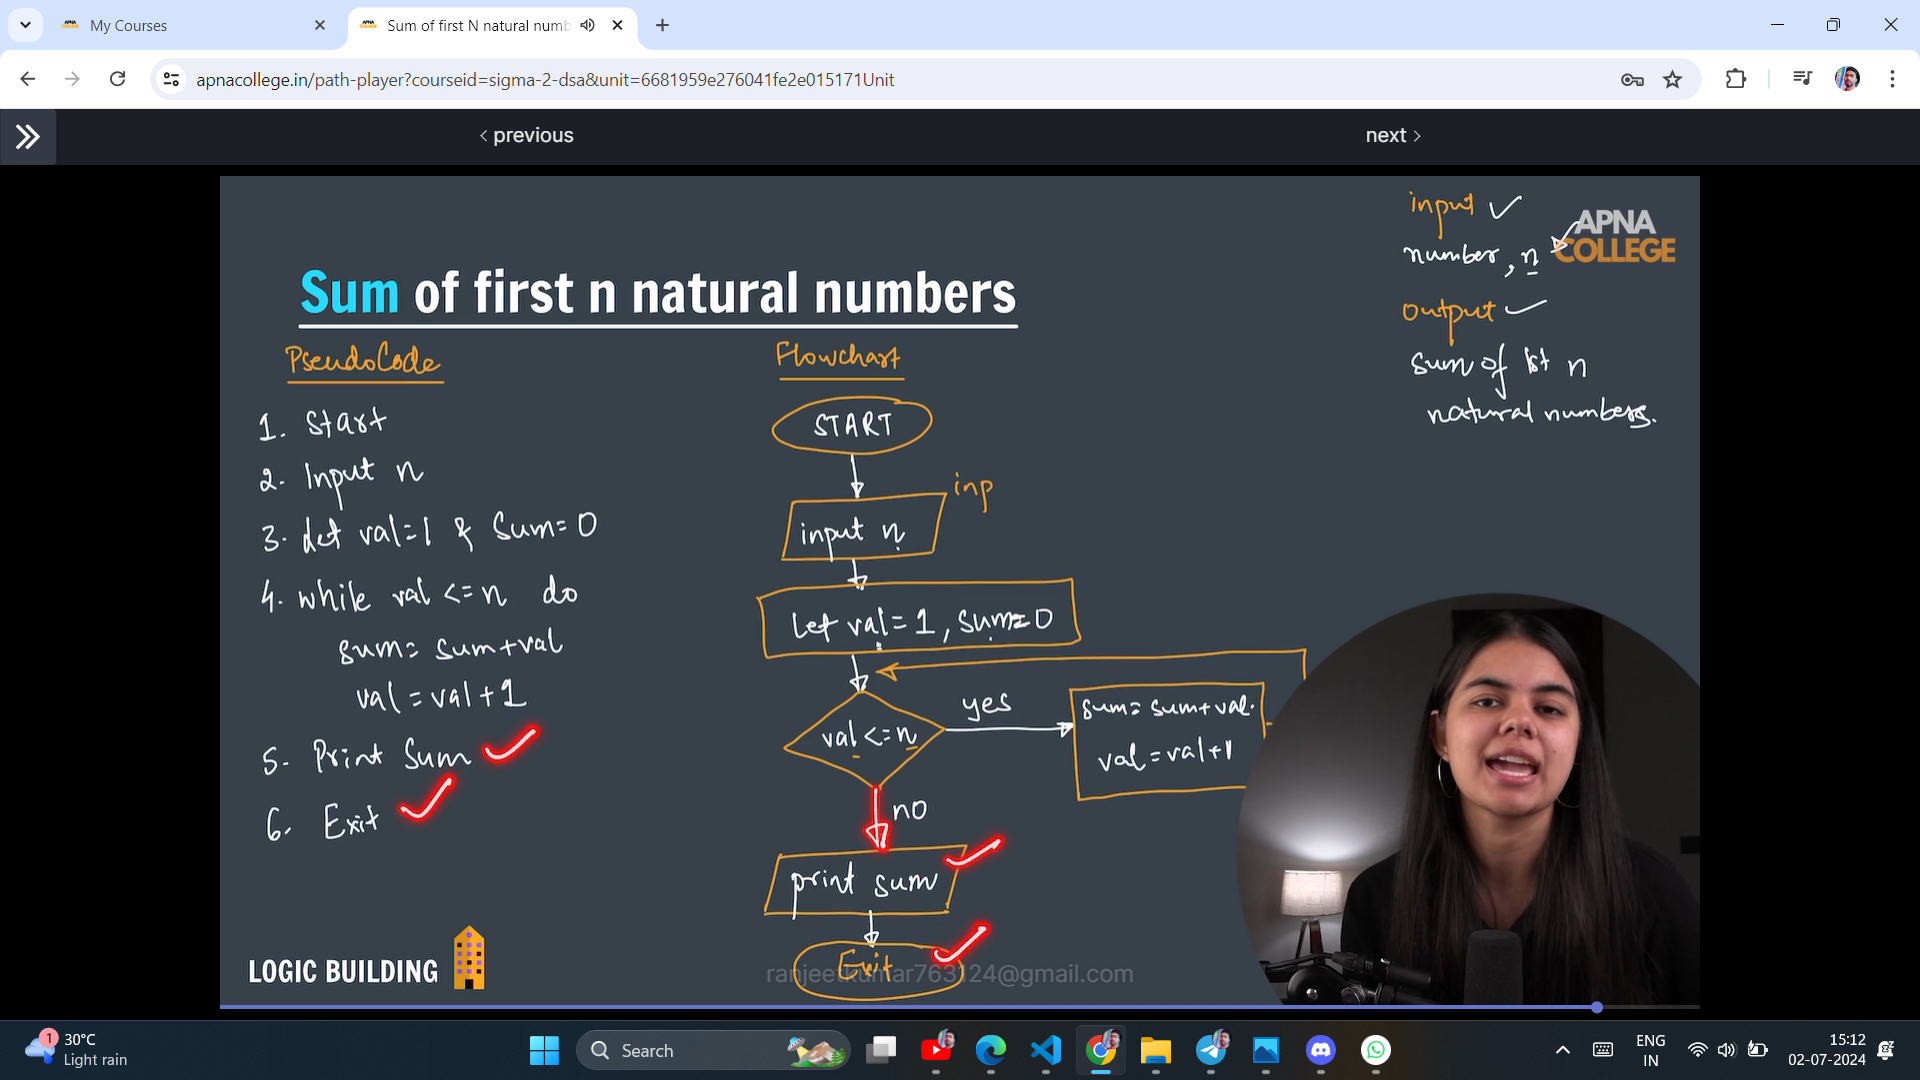 My Courses
Sum of first N natural numb
apnacollege.in/path-player?courseid=sigma-2-dsa&unit=6681959e276041fe2e015171Unit
previous
next
input
APNA
COLLEGE
number, n
output
sum of 1st n
natural numbers.
Sum of first n natural numbers
PseudoCode
1. Start
2. Input n
3. Let val=1 & Sum=0
4. while val <=n do
sum= sum+val
val = val+1
5. Print Sum
6. Exit
Flowchart
START
inp
input n
let val=1, sum=0
val <=n
yes
sum= sum+val.
val=val+1
no
print sum
Exit
LOGIC BUILDING
ranjeetkumar763124@gmail.com
1
30°C
Light rain
Search
ENG
IN
15:12
02-07-2024